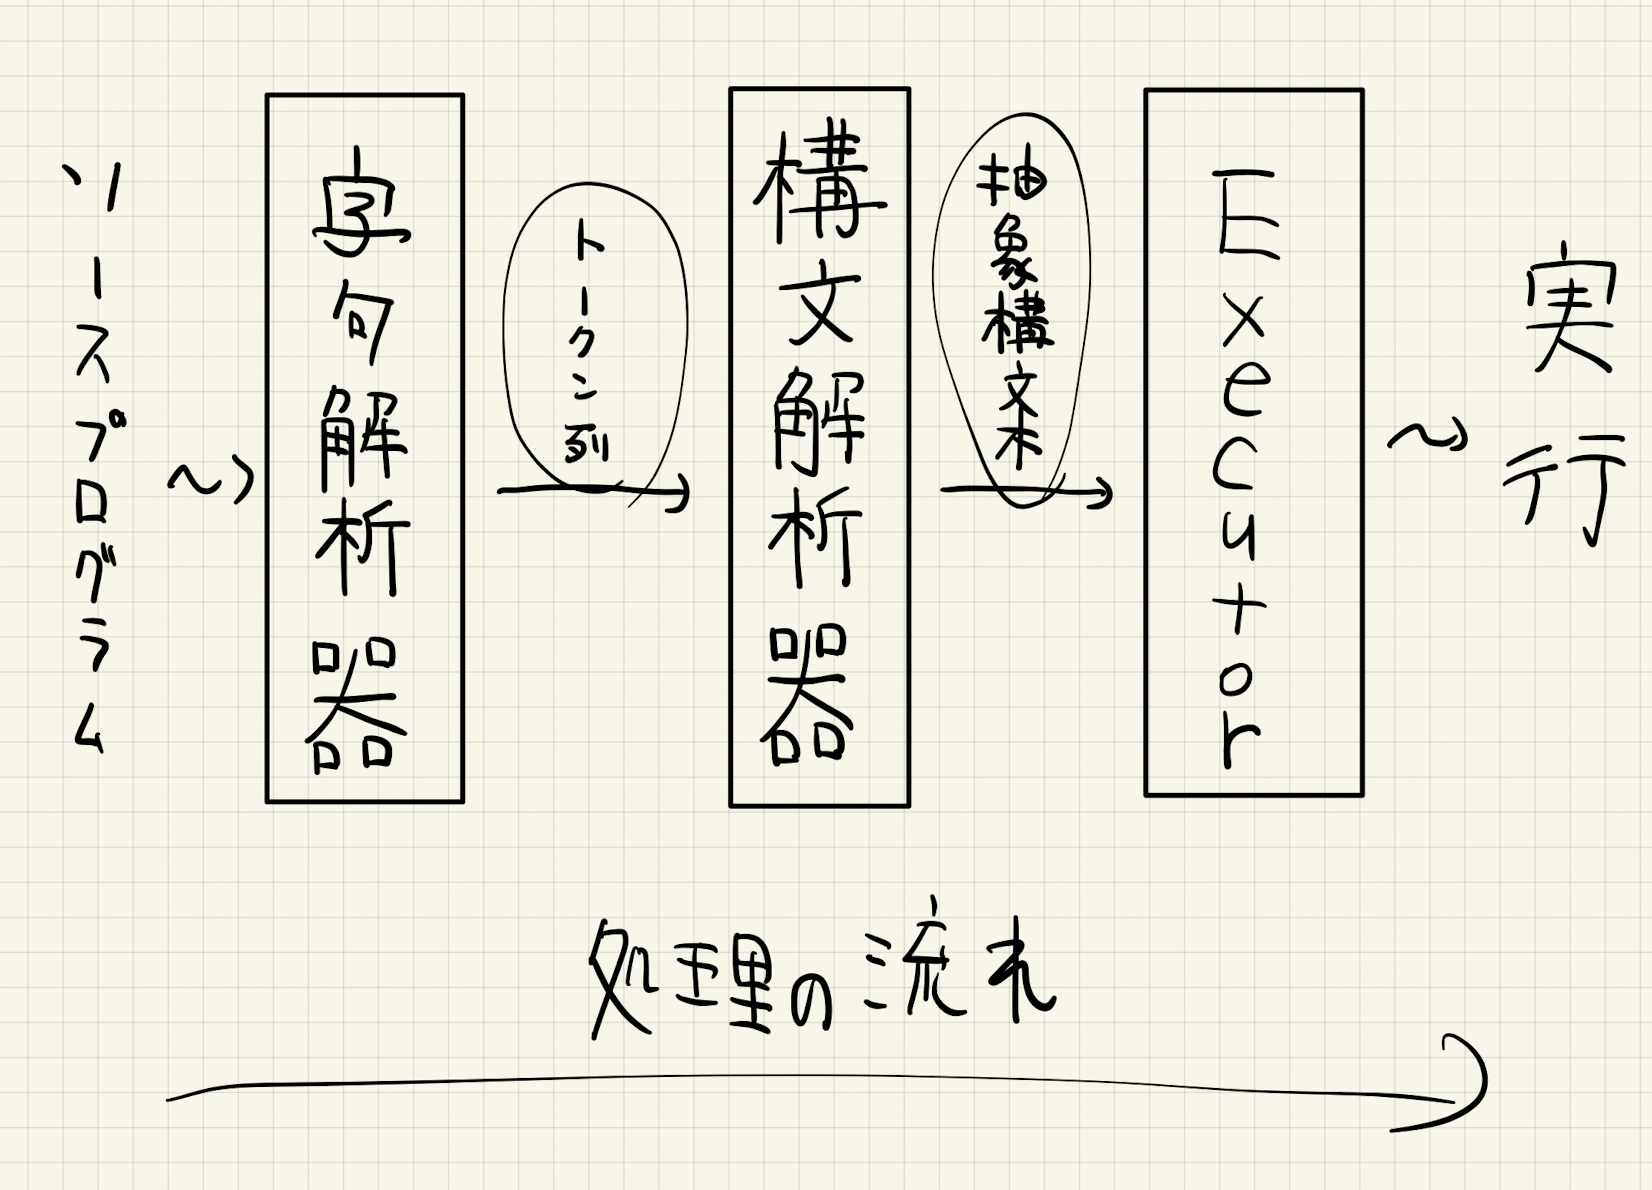 ソースプログラム
字句解析器
トークン列
構文解析器
抽象構文木
Executor
実行
処理の流れ